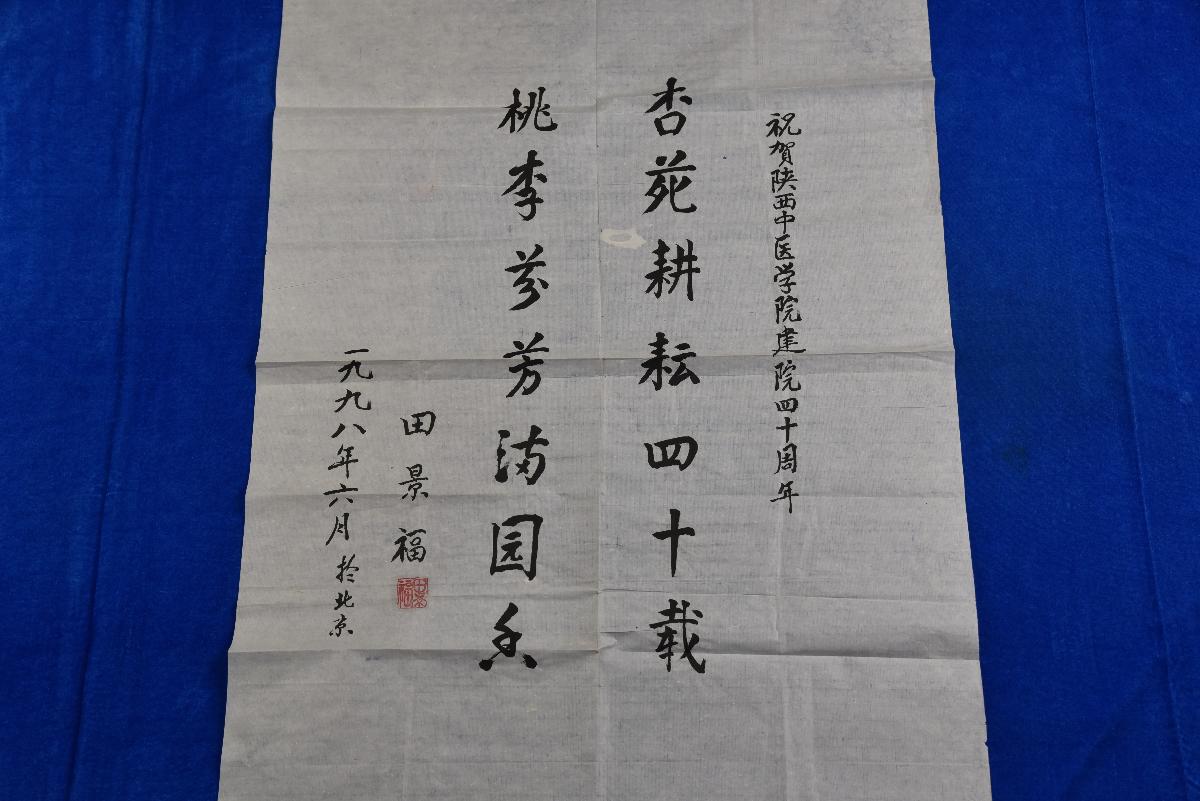 祝贺陕西中医学院建院四十周年
杏苑耕耘四十载
桃李芬芳满园香
田景福
一九九八年六月於北京
田景福